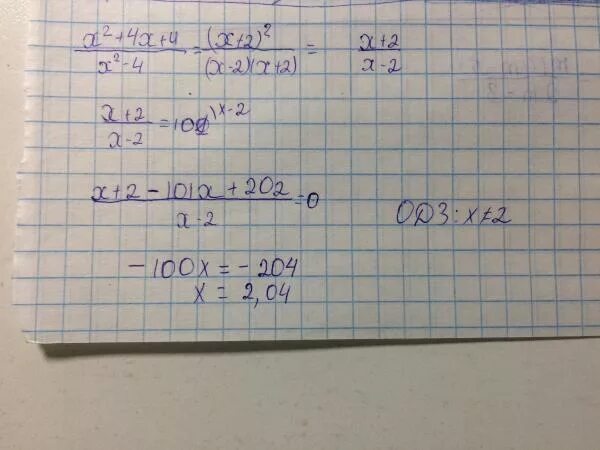 x²+4x+4/x²-4 = (x+2)²/(x-2)(x+2) = x+2/x-2
x+2/x-2 = 101^\x-2
x+2-101x+202/x-2 = 0
ОДЗ: x≠2
-100x = -204
x = 2,04